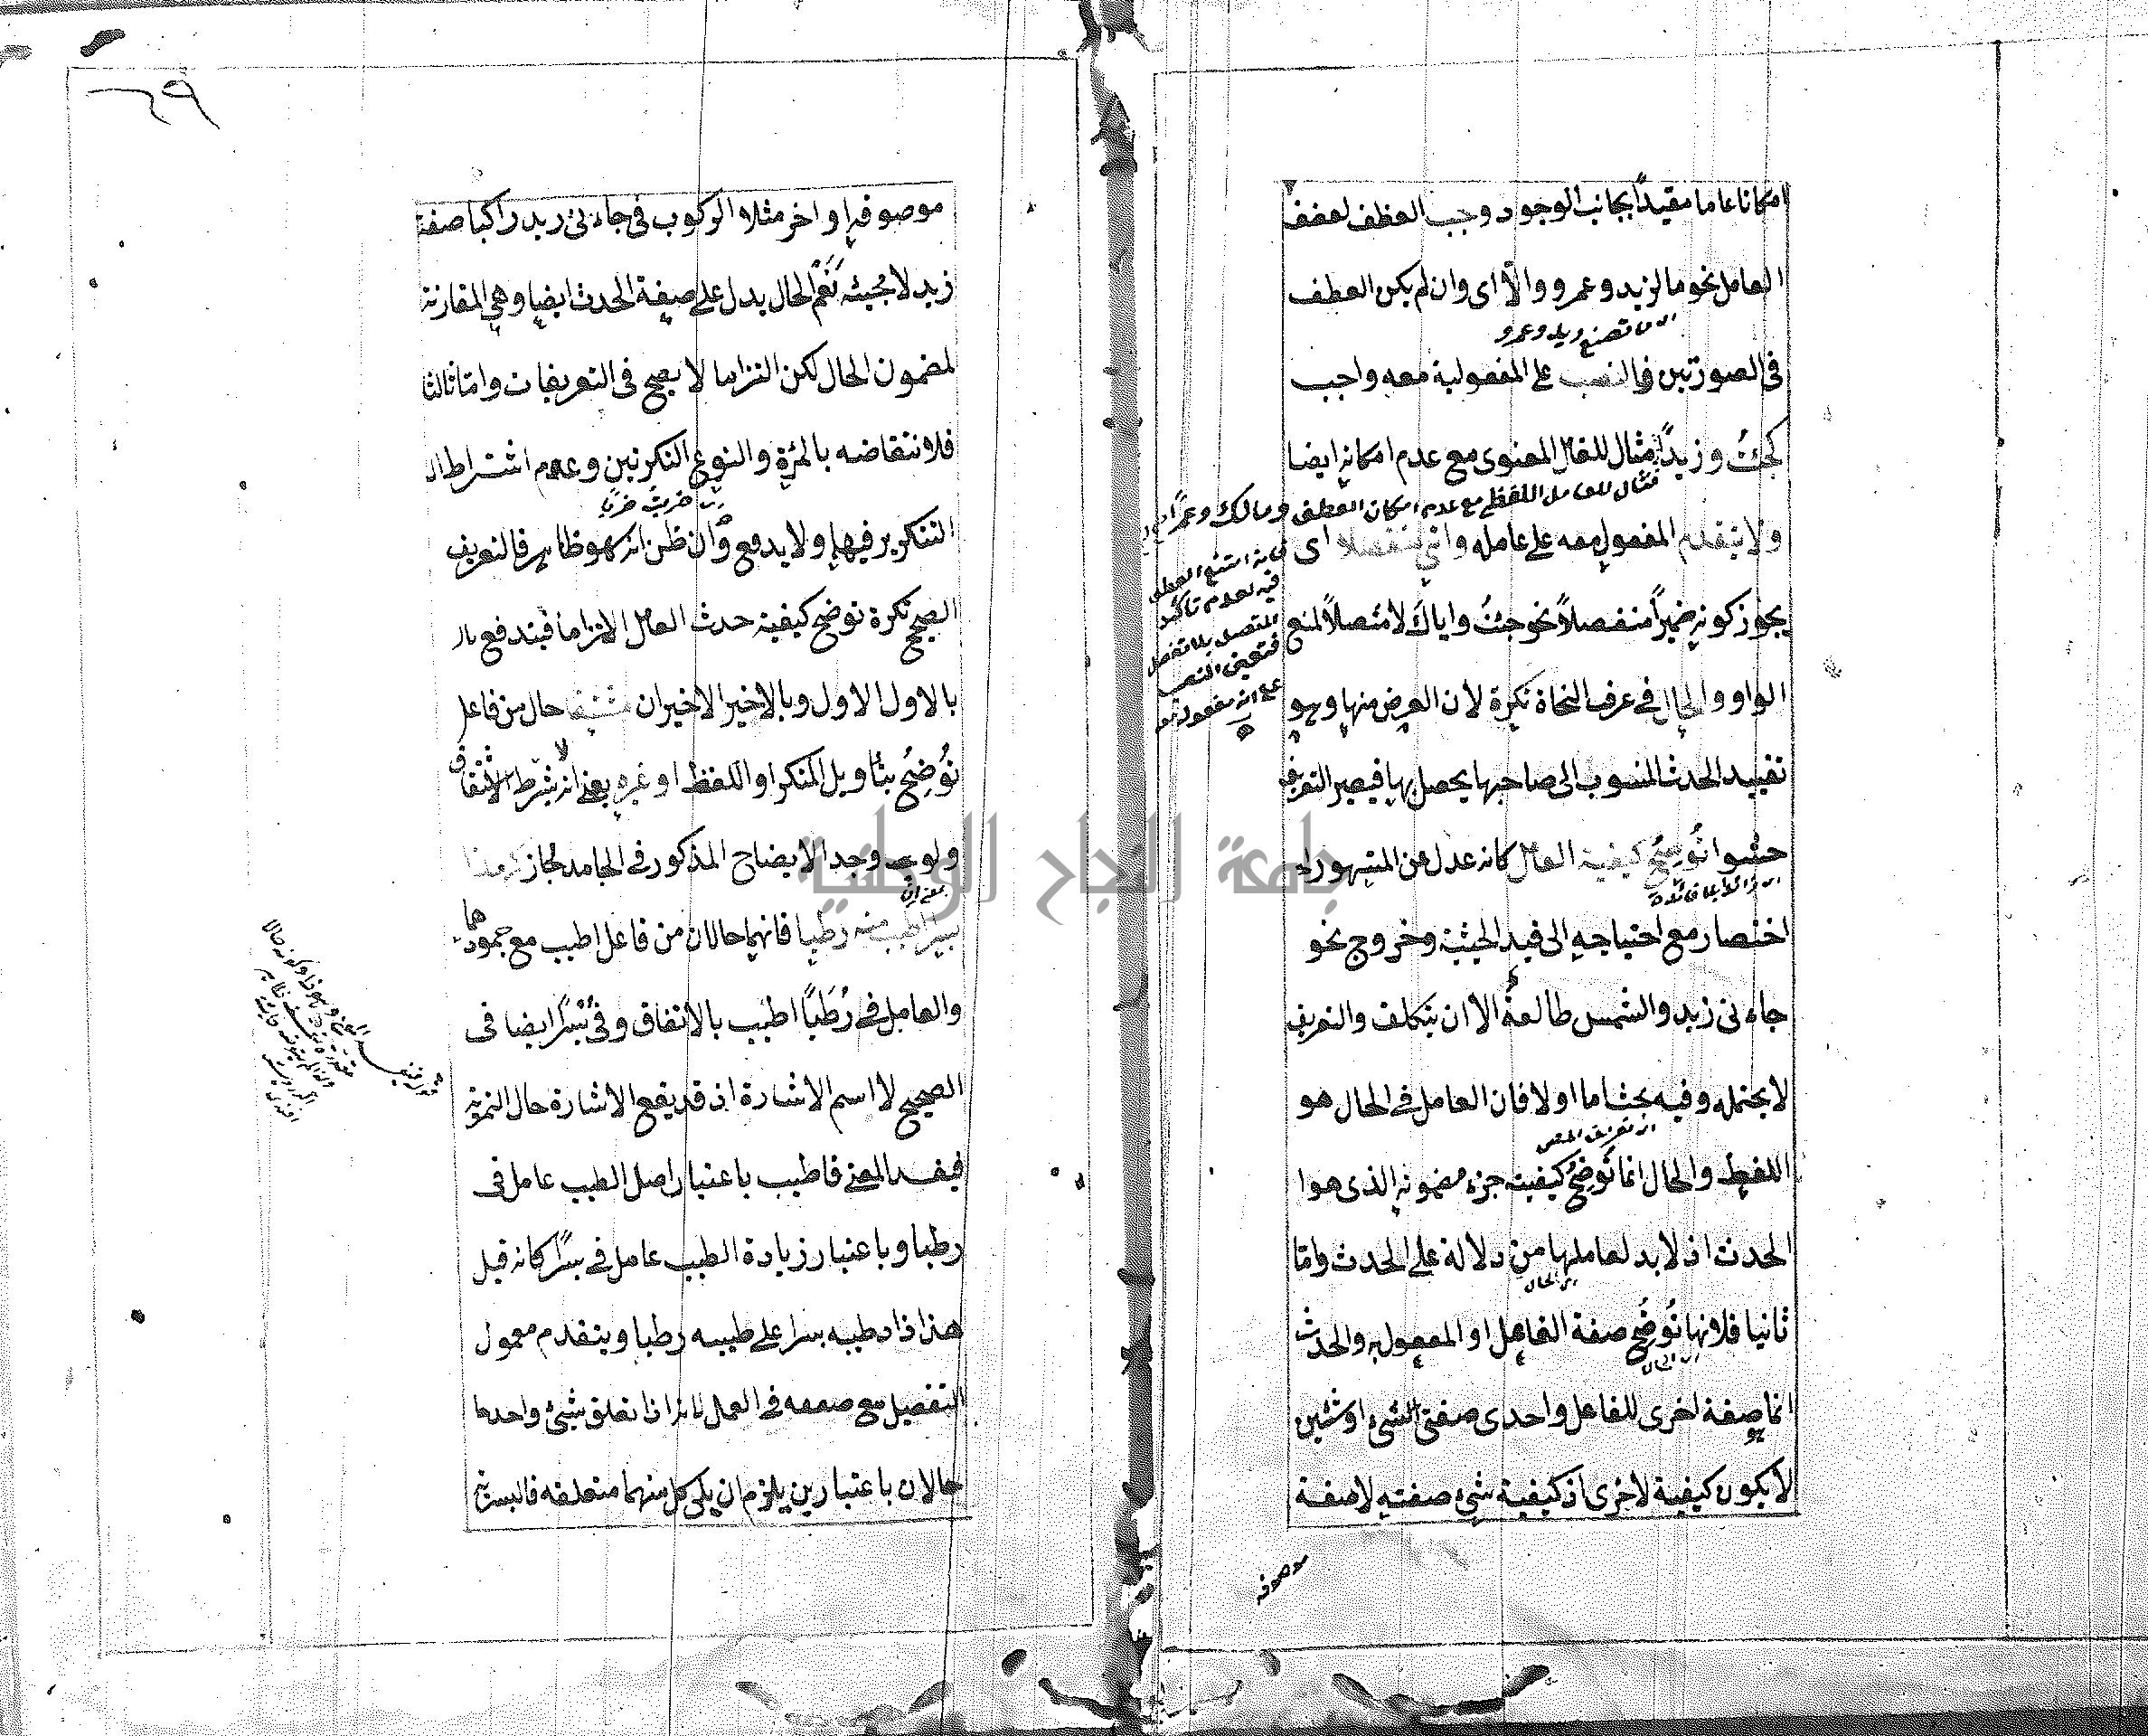 امكانا عاما مقيدًا بجانب الوجود وجب العطف لضعف
العامل نحو ما لزيد وعمرو والّا اى وان لم يكن العطف
تصنع وزيد وعمرو
فى الصورتين فالنصب على المفعولية معه واجب
كجئتُ وزيدًا مثال للفعل المعنوى مع عدم امكانه ايضا
فمثال للعامل اللفظى مع عدم امكان العطف ومالك وعمرًا
ولا يتقدم المفعول معه على عامله واتى منفصلا اى
يجوز كونه ضميرًا منفصلاً نحو جئتُ واياك لا متصلاً لمنع
الواو والحال فى عرف النحاة نكرة لان الغرض منها وهو
تقييد الحدث المنسوب الى صاحبها يحصل بها فيصير التعريف
حشوا تُوضِحُ كيفية العامل كانه عدل عن المشهور
اختصار مع احتياجه الى قيد الحيثية وخروج نحو
جاءنى زيد والشمس طالعةٌ الا ان يتكلف والتعريف
لا يحتمله وفيه بحث اما اولا فان العامل فى الحال هو
اللفظ والحال انما تُوضِحُ كيفية جزء مضمونه الذى هو ا
الحدث اذ لا بد لعاملها من دلالة على الحدث وامّا
ثانيا فلانها تُوضِحُ صفة الفاعل او المفعول به والحدث
انما صفة اخرى للفاعل واحدى صفتى الشئ او شئين
لا يكون كيفية لاخرى اذ كيفية شئ صفته لا صفة
موصوفه
فانه امتنع العطف
فيه لعدم تأكيد
المتصل بالمنفصل
فتعين النصب
على انه مفعول معه
٦٩
موصوفها واخر مثلا الركوب فى جاءنى زيد راكبا صفة
زيد لا مجيئه نَعَمْ الحال يدل على صفة الحدث ايضا وهى المقارنة
لمضمون الحال لكن التزاما لا يصح فى التعريفات وامّا ثالثا
فلانتقاضه بالمرّة والنوع النكرتين وعدم اشتراط ا
ضربت ضربًا
التنكير فيها ولا يدفع وان ظن انه كهو ظاهر فالتعريف
الصحيح نكرة توضح كيفية حدث العامل الا التزاما فيندفع
بالاول الاول وبالاخير الاخيران حال من فاعل
تُوضِحُ بتأويل المنكر او اللفظ او غيره يعنى انه لا يشترط الاشتقاق
ولو وجد الايضاح المذكور فى الجامد لجاز هذا
بسرا اطيب منه رطبا فانهما حالان من فاعل اطيب مع جمودهما
والعامل فى رُطَبًا اطيب بالاتفاق وفى بُسْرًا ايضا فى
الصحيح لا اسم الاشارة اذ قد يقع الاشارة حال التمرية
فيفسد المعنى فاطيب باعتبار اصل الطيب عامل فى
رطبا وباعتبار زيادة الطيب عامل فى بسرًا كانه قيل
هذا زاد طيبه بسرا على طيبه رطبا ويتقدم معمول
التفضيل مع ضعفه فى العمل لانه اذا تعلق بشئ واحد
حالان باعتبارين يلزم ان يلى كل منهما متعلقه فالبسرية
جامعة النجاح الوطنية